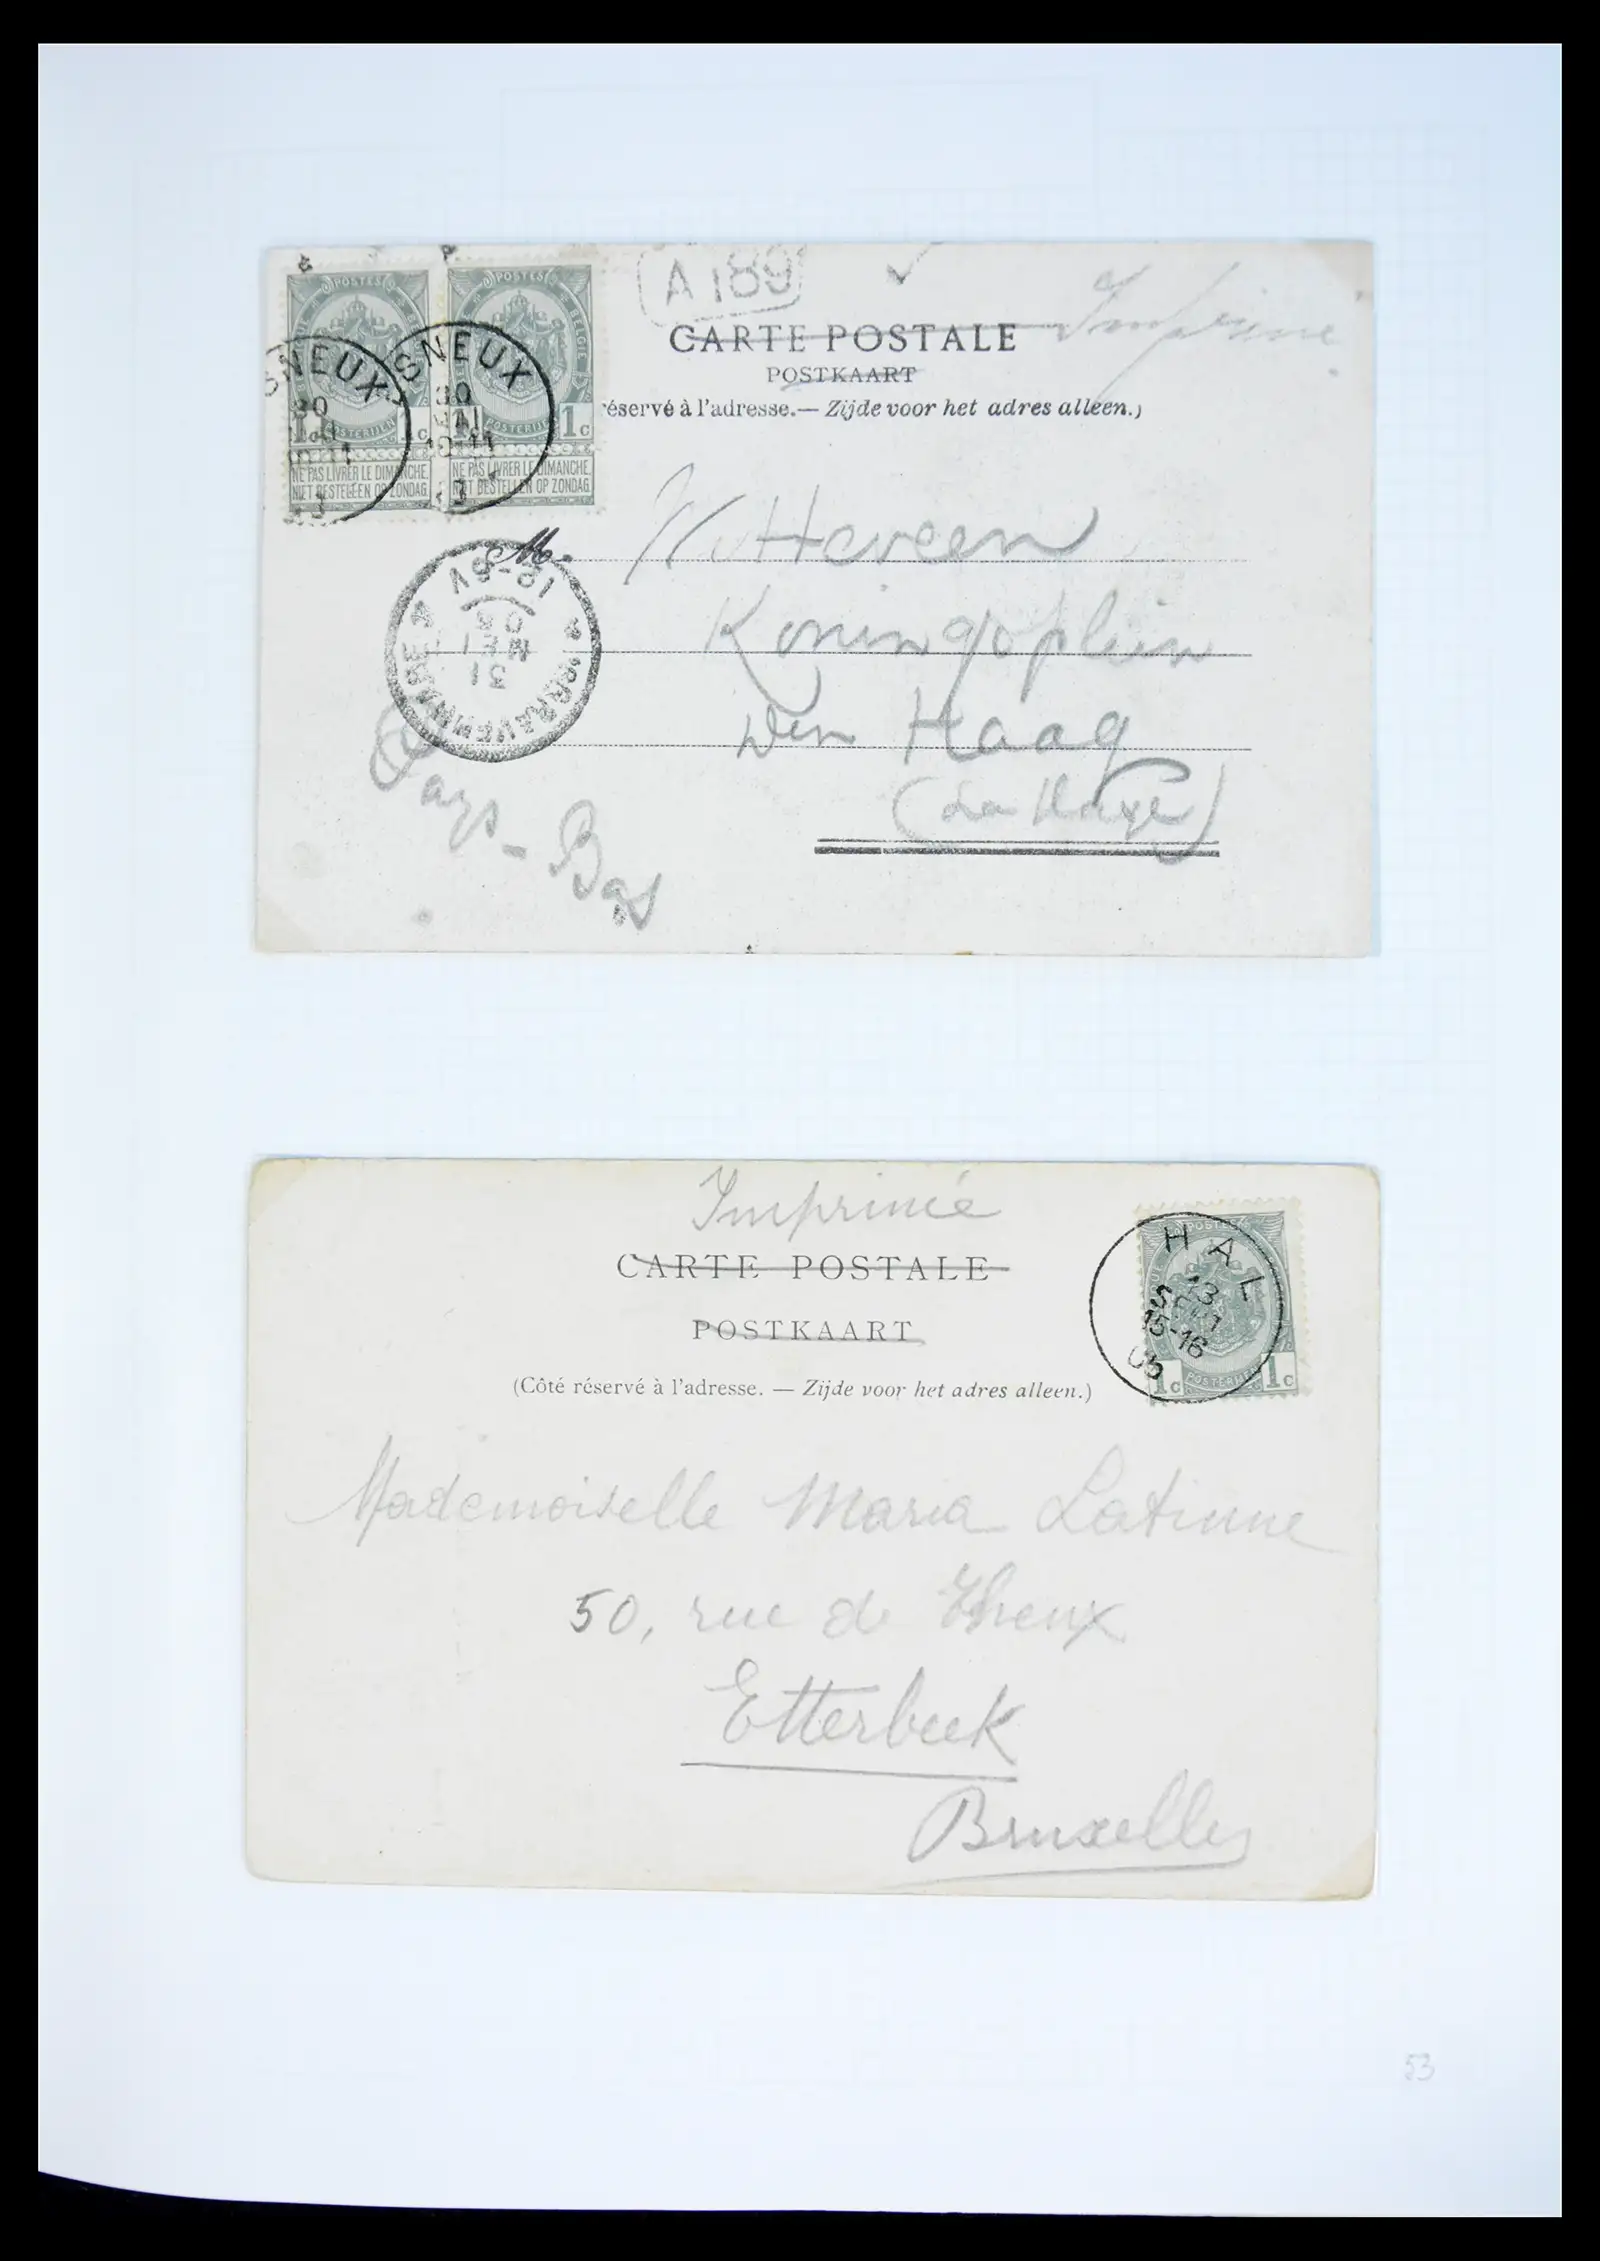 A 189
Imprimé
CARTE POSTALE
POSTKAART
éservé à l'adresse.— Zijde voor het adres alleen.)
POSTES POSTES
SNEUX SNEUX
30 30
MAI
10-11 10-11
1c 1c 1c
POSTERIJEN POSTERIJEN
NE PAS LIVRER LE DIMANCHE. NE PAS LIVRER LE DIMANCHE.
NIET BESTELLEN OP ZONDAG NIET BESTELLEN OP ZONDAG
M. Witteveen
Koningsplein
Den Haag
(La Haye)
'S GRAVENHAGE
31
MEI
03
12-5V
Pays-Bas
Imprimé
CARTE POSTALE
POSTKAART
(Côté réservé à l'adresse. — Zijde voor het adres alleen.)
POSTES
HAL
13
15-16
03
1c POSTERIJEN 1c
Mademoiselle Maria Latinne
50, rue de Theux
Etterbeek
Bruxelles
53